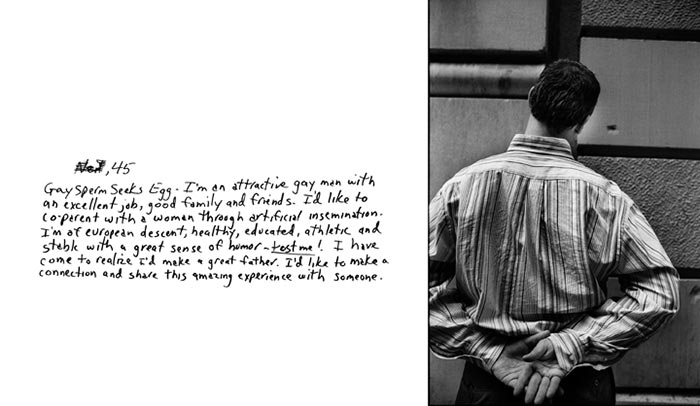 , 45
Gay Sperm Seeks Egg. I'm an attractive gay man with
an excellent job, good family and friends. I'd like to
co-parent with a woman through artificial insemination.
I'm of european descent, healthy, educated, athletic and
stable with a great sense of humor - test me! I have
come to realize I'd make a great father. I'd like to make a
connection and share this amazing experience with someone.